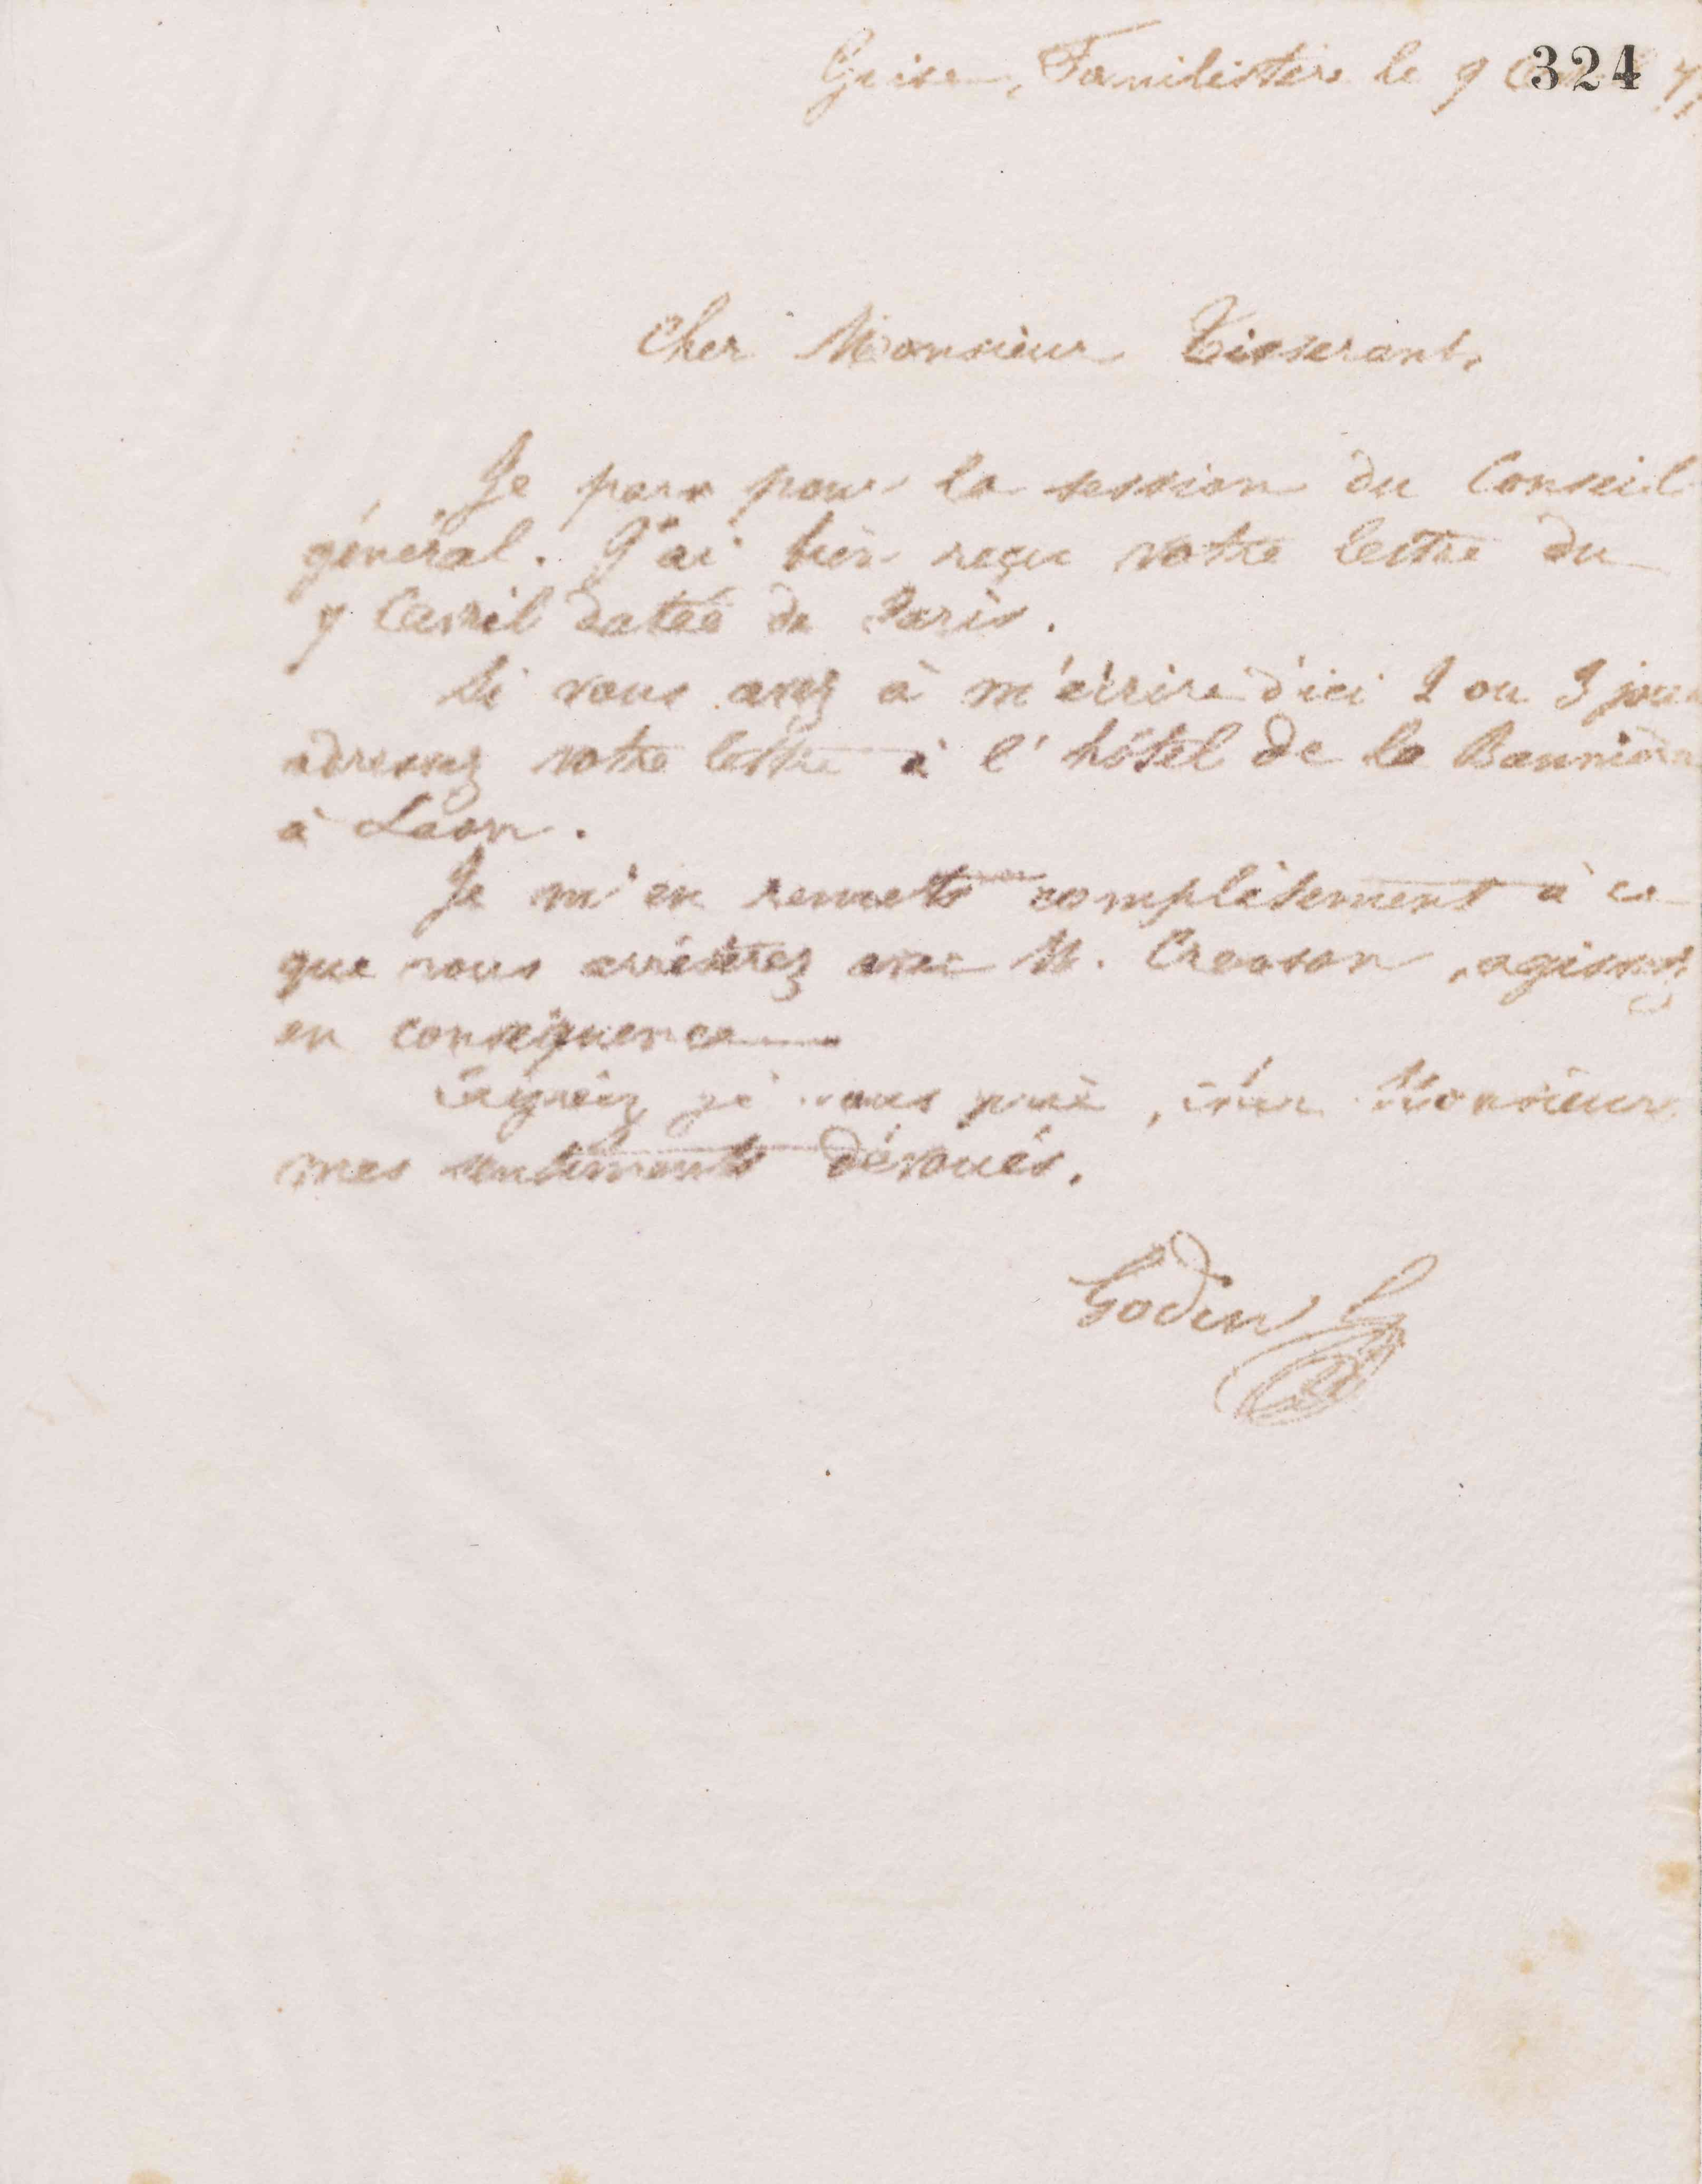 Guise, Familistère le 9
324
Cher Monsieur Tisserant,
Je pars pour la session du Conseil
général. J'ai bien reçu votre lettre du
7 Avril datée de Paris.
Si vous avez à m'écrire d'ici 2 ou 3 jours
adressez votre lettre à l'hôtel de la Bannière
à Laon.
Je m'en remets complètement à ce
que vous arrêterez avec M. agissez
en conséquence
Agréez je vous prie, cher Monsieur
mes sentiments dévoués.
Godin